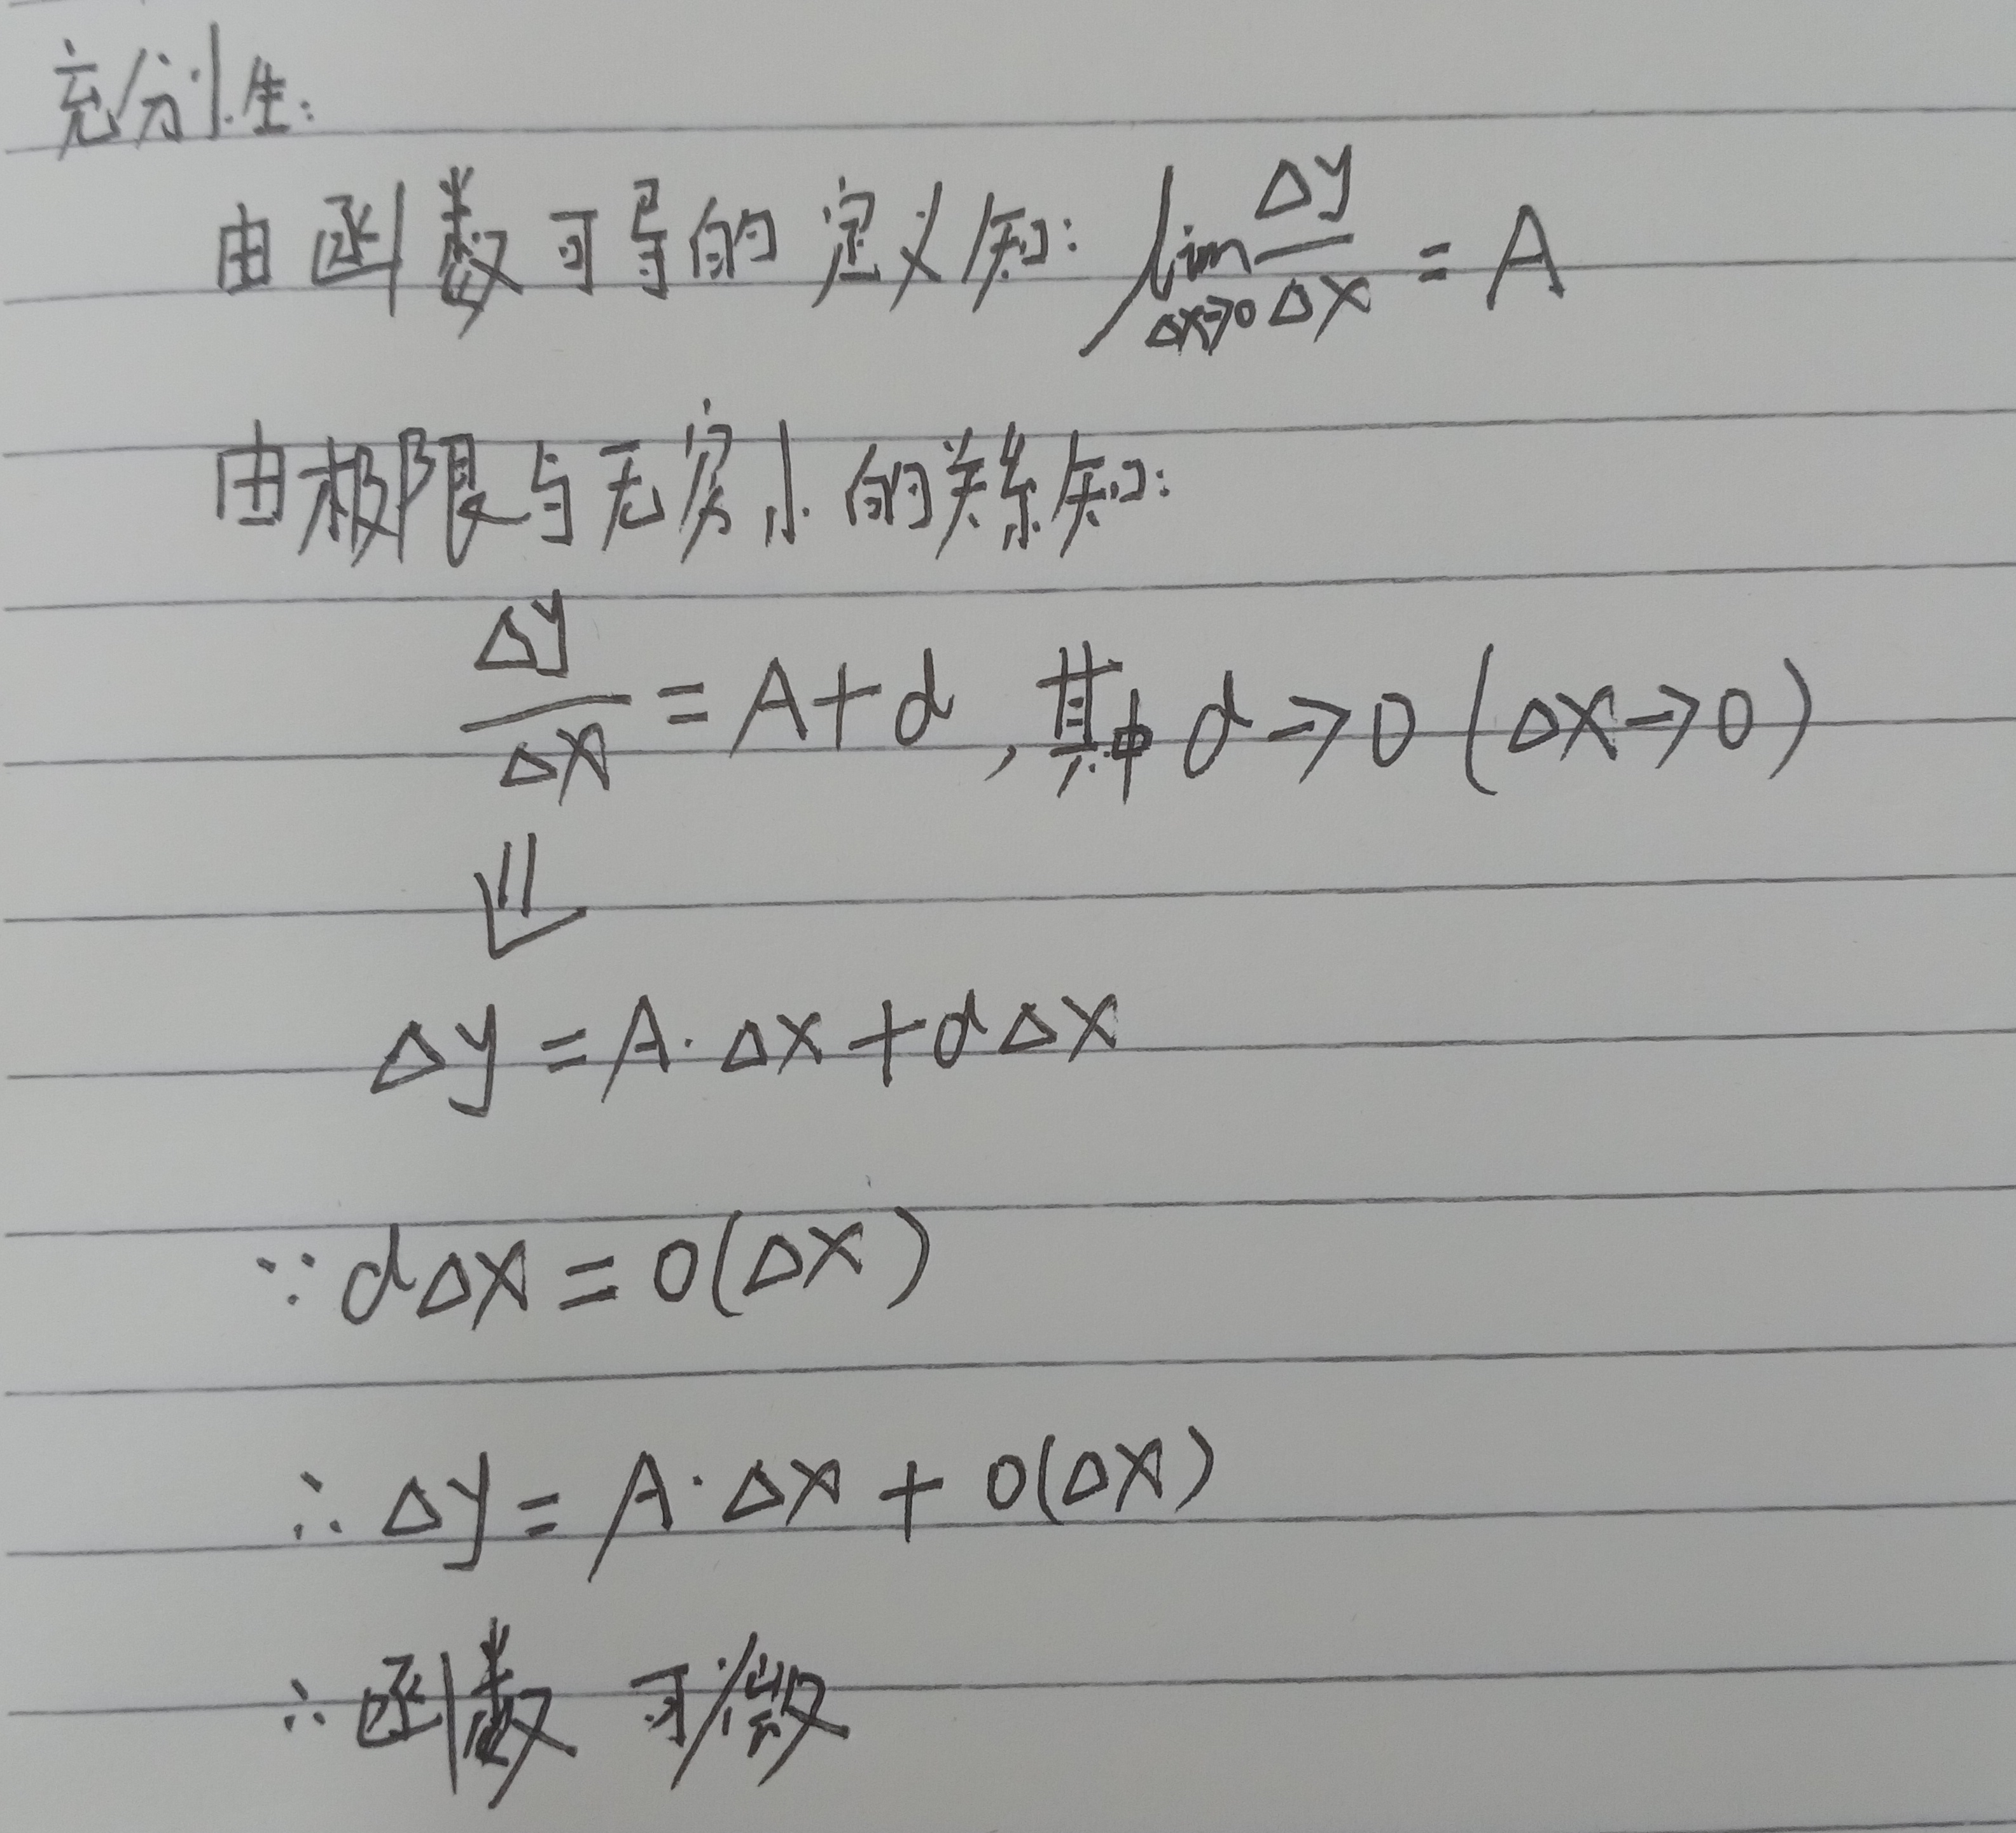 充分性:
由函数可导的定义知: lim Δx→0 Δy/Δx = A
由极限与无穷小的关系知:
Δy/Δx = A+α, 其中 α→0 (Δx→0)
⇓
Δy = A·Δx + αΔx
∵ αΔx = o(Δx)
∴ Δy = A·Δx + o(Δx)
∴ 函数 可微